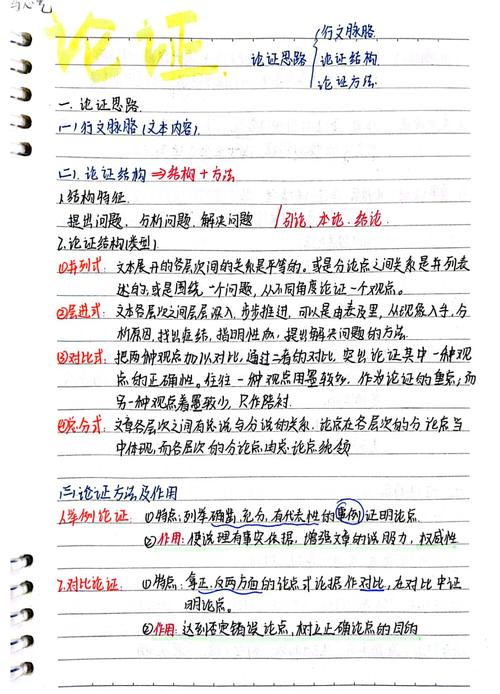 论证
论证思路
行文脉络
论证结构
论证方法
一. 论证思路
(一)行文脉胳(文本内容)
(二). 论证结构⇒结构+方法
1.结构特征
提出问题、分析问题、解决问题 / 引论、本论、结论
2.论证结构(类型)
①并列式: 文本展开的各层次间的关系是平等的。或是分论点之间关系是并列表
述的;或是围绕一个问题,从不同角度论证一个观点。
②层进式: 文本各层次之间层层深入,步步推进,可以是由表及里,从现象入手,分
析原因,找出症结,指明性质,提出解决问题的方法.
③对比式: 把两种观点加以对比,通过二者的对比,突出论证其中一种观
点的正确性。往往一种观点用墨较多,作为论证的重点;而
另一种观点着墨较少,只作陪衬.
④总分式: 文章各层次之间有总说与分说的关系,论点在各层次的分论点当
中体现,而各层次的分论点由总论点统领
(三)论证方法及作用
1.举例论证: ①特点:列举确凿、充分,有代表性的事例证明论点.
②作用: 使说理有事实依据,增强文章的说服力,权威性
2.对比论证: ①特点: 拿正、反两方面的论点或论据作对比,在对比中证
明论点。
②作用: 达到否定错误论点,树立正确论点的目的